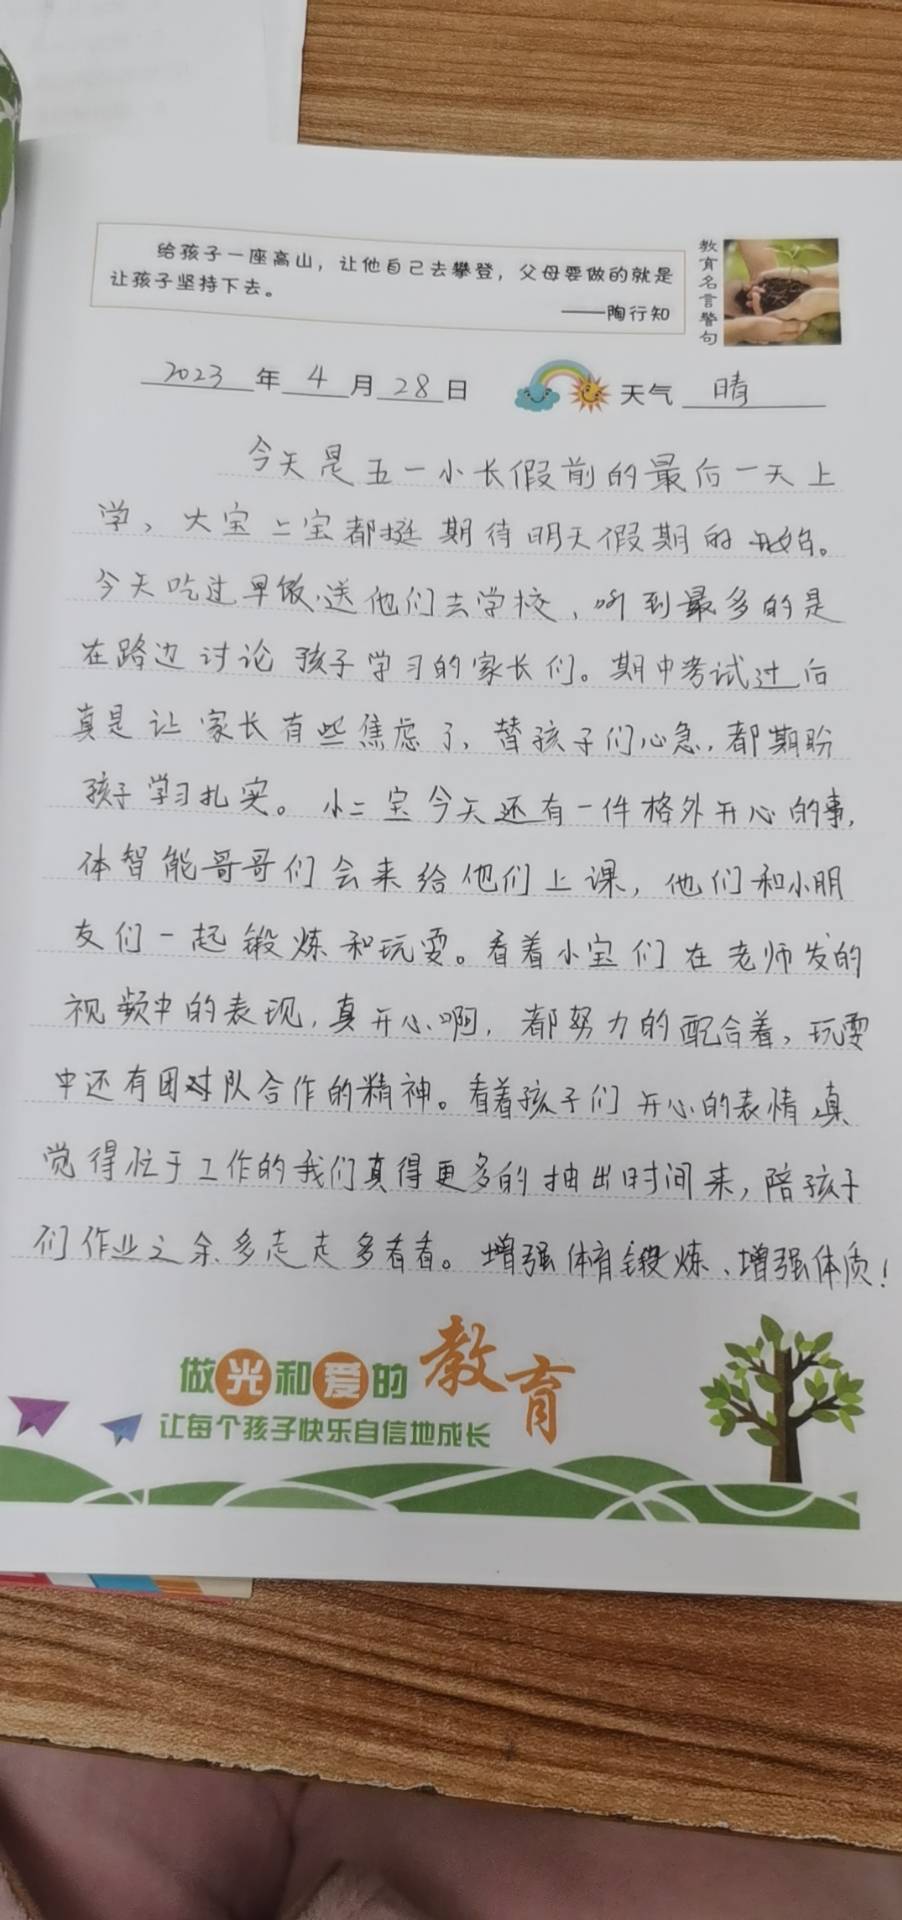 给孩子一座高山，让他自己去攀登，父母要做的就是
让孩子坚持下去。
——陶行知
教育名言警句
2023年4月28日 天气 晴
今天是五一小长假前的最后一天上
学，大宝二宝都挺期待明天假期的开始。
今天吃过早饭，送他们去学校，听到最多的是
在路边讨论孩子学习的家长们。期中考试过后
真是让家长有些焦虑了，替孩子们心急，都期盼
孩子学习扎实。小二宝今天还有一件格外开心的事，
体智能哥哥们会来给他们上课，他们和小朋
友们一起锻炼和玩耍。看着小宝们在老师发的
视频中的表现，真开心啊，都努力的配合着，玩耍
中还有团队合作的精神。看着孩子们开心的表情，真
觉得忙于工作的我们真得更多的抽出时间来，陪孩子
们作业之余多走走多看看。增强体育锻炼、增强体质！
做光和爱的教育
让每个孩子快乐自信地成长